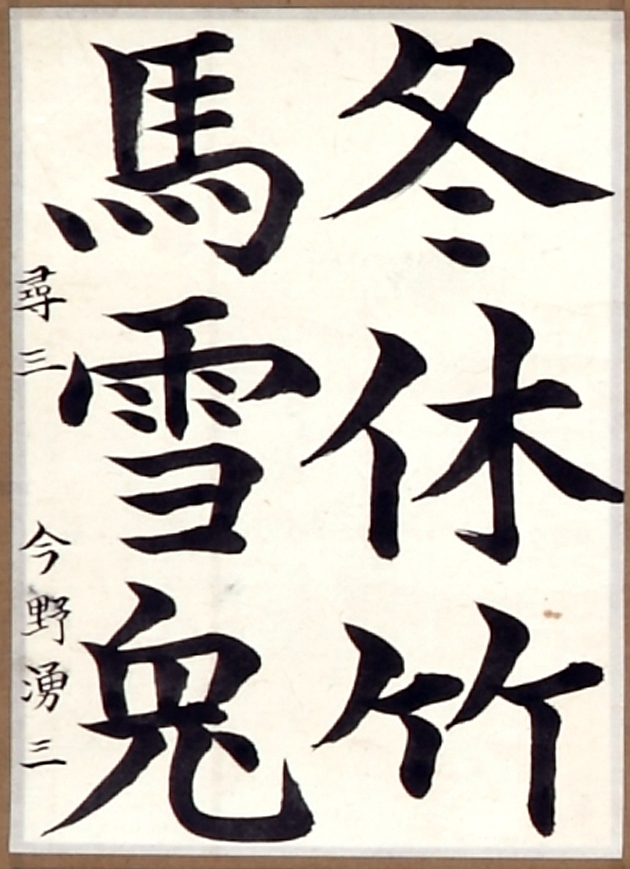 冬休竹
馬雪兎
尋三 今野湧三